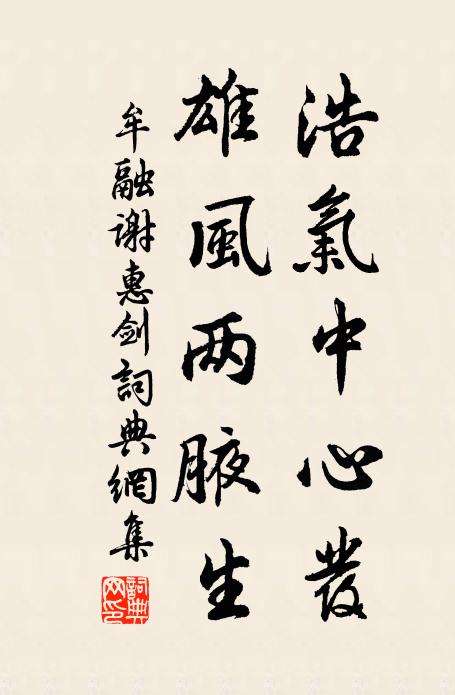 浩氣中心發
雄風两腋生
牟融谢惠剑詞典網集
詞典网印